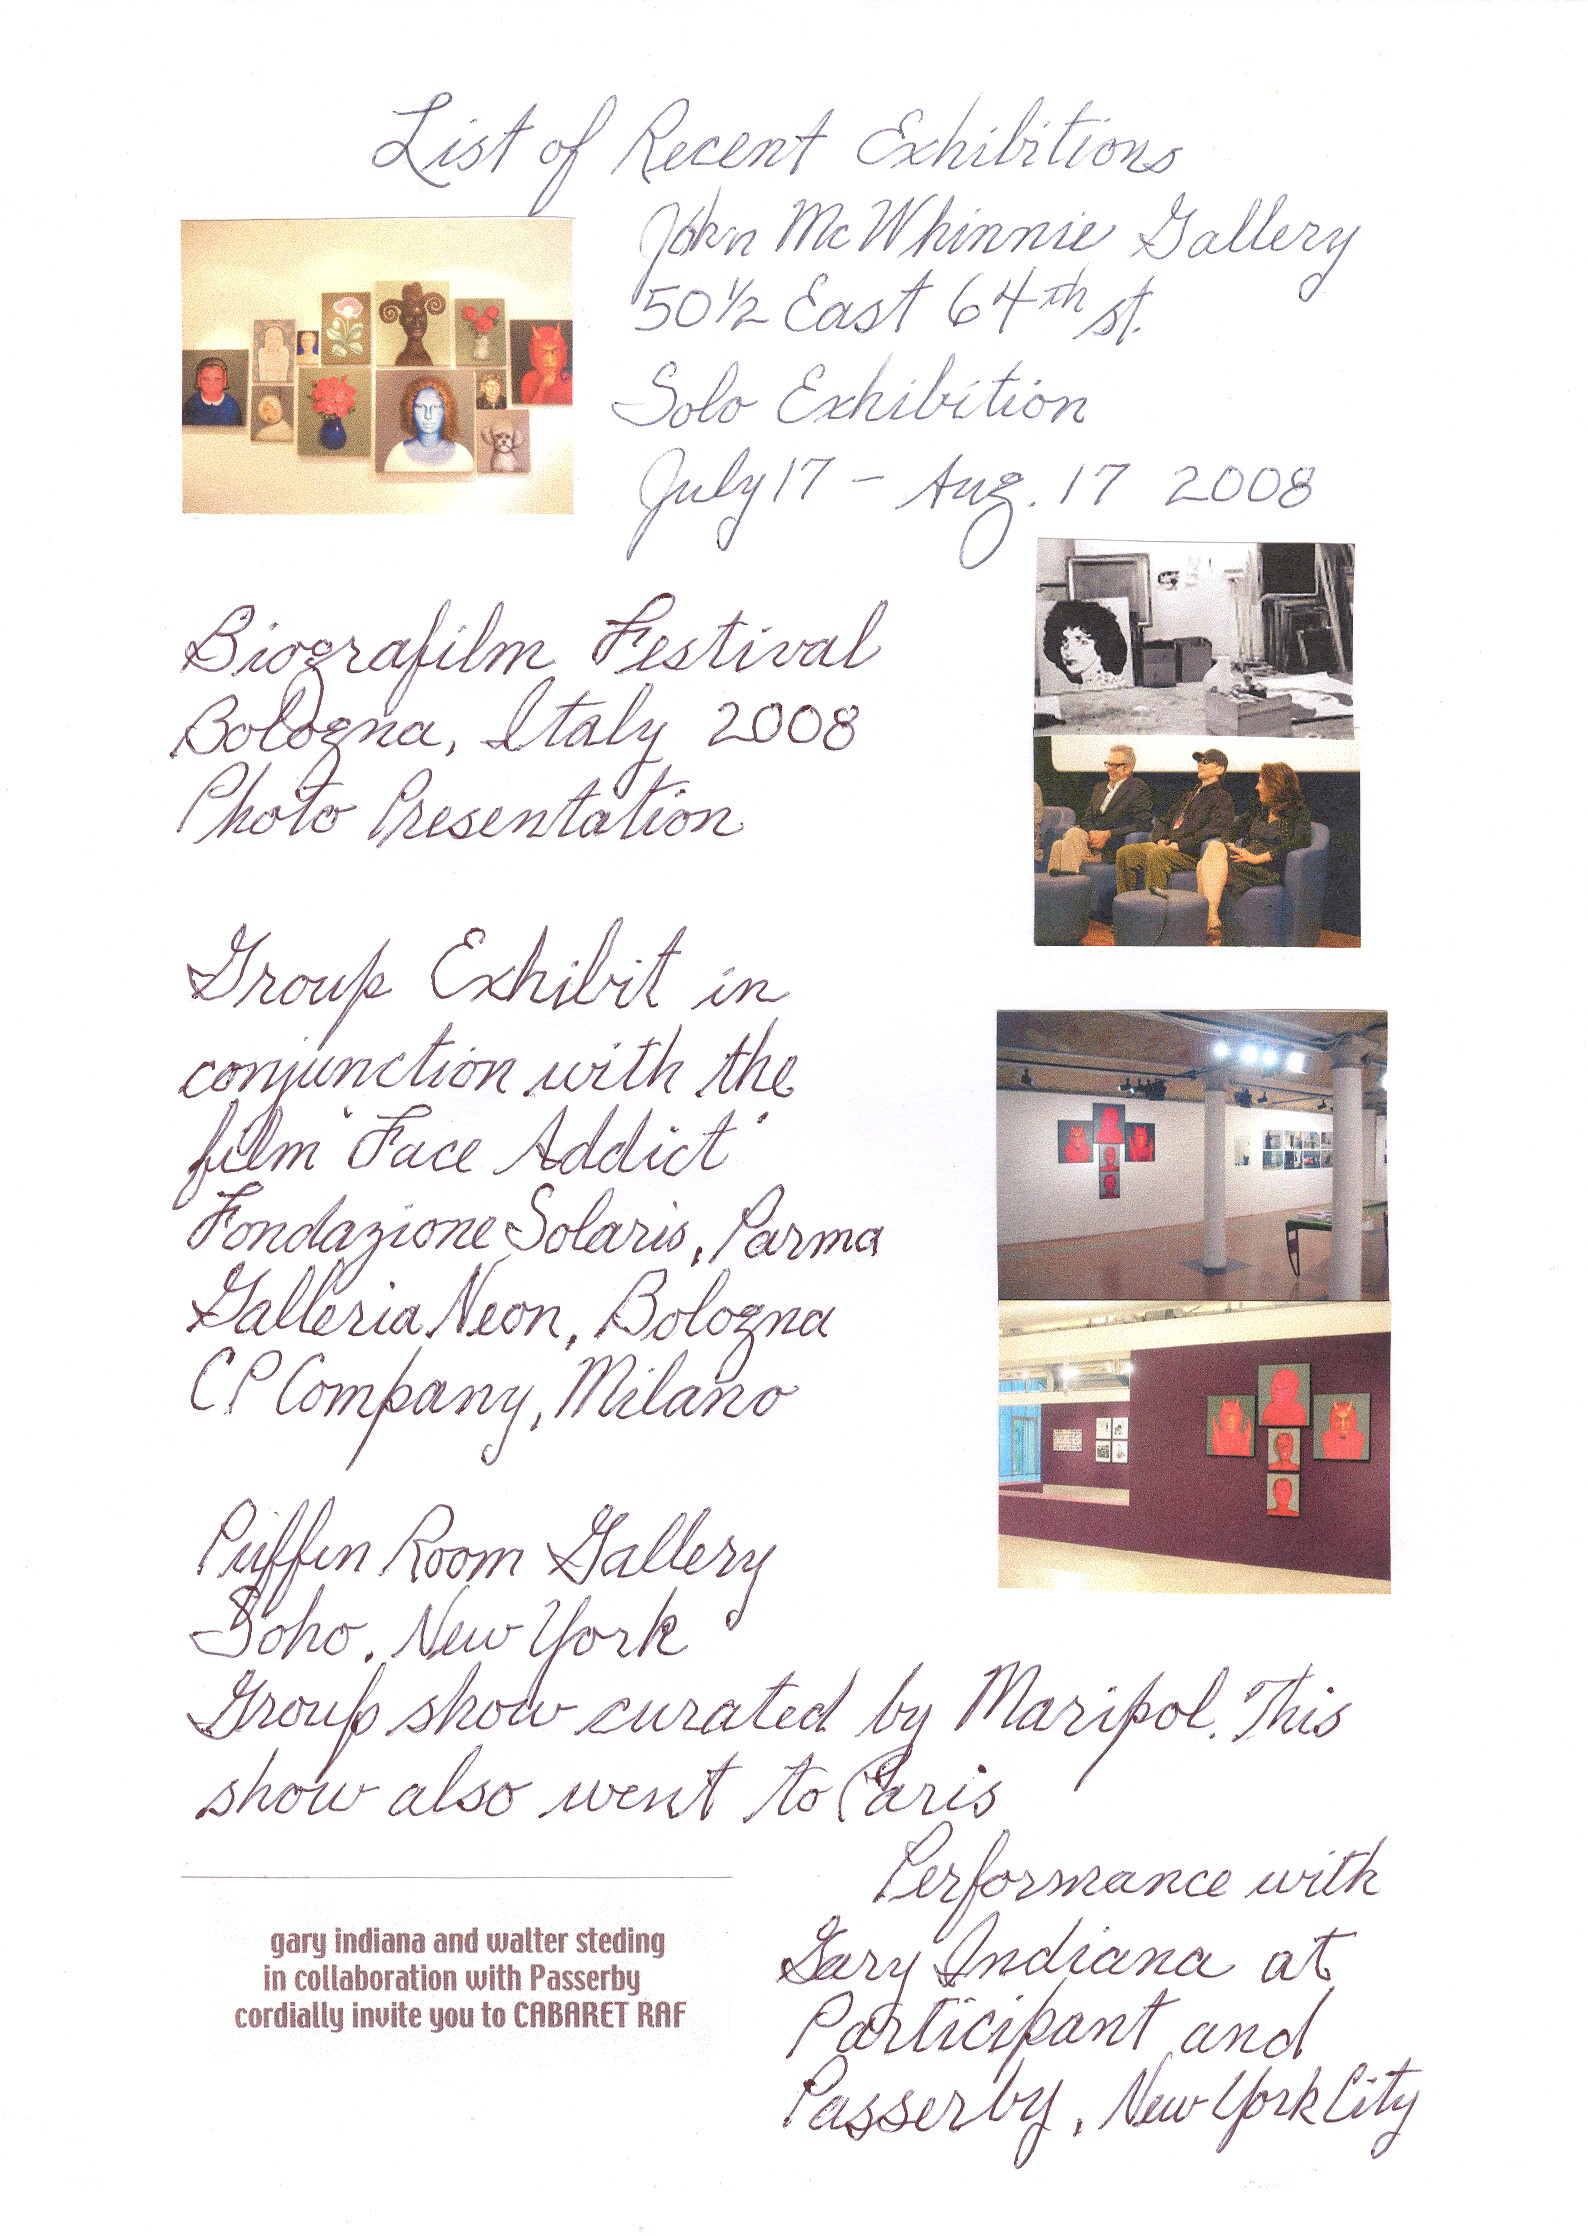 List of Recent Exhibitions
John McWhinnie Gallery
50 1/2 East 64th st.
Solo Exhibition
July 17 - Aug. 17 2008
Biografilm Festival
Bologna, Italy 2008
Photo Presentation
Group Exhibit in
conjunction with the
film "Face Addict"
Fondazione Solaris, Parma
Galleria Neon, Bologna
CP Company, Milano
Puffin Room Gallery
Soho, New York
Group show curated by Maripol. This
show also went to Paris
gary indiana and walter steding
in collaboration with Passerby
cordially invite you to CABARET RAF
Performance with
Gary Indiana at
Participant and
Passerby, New York City